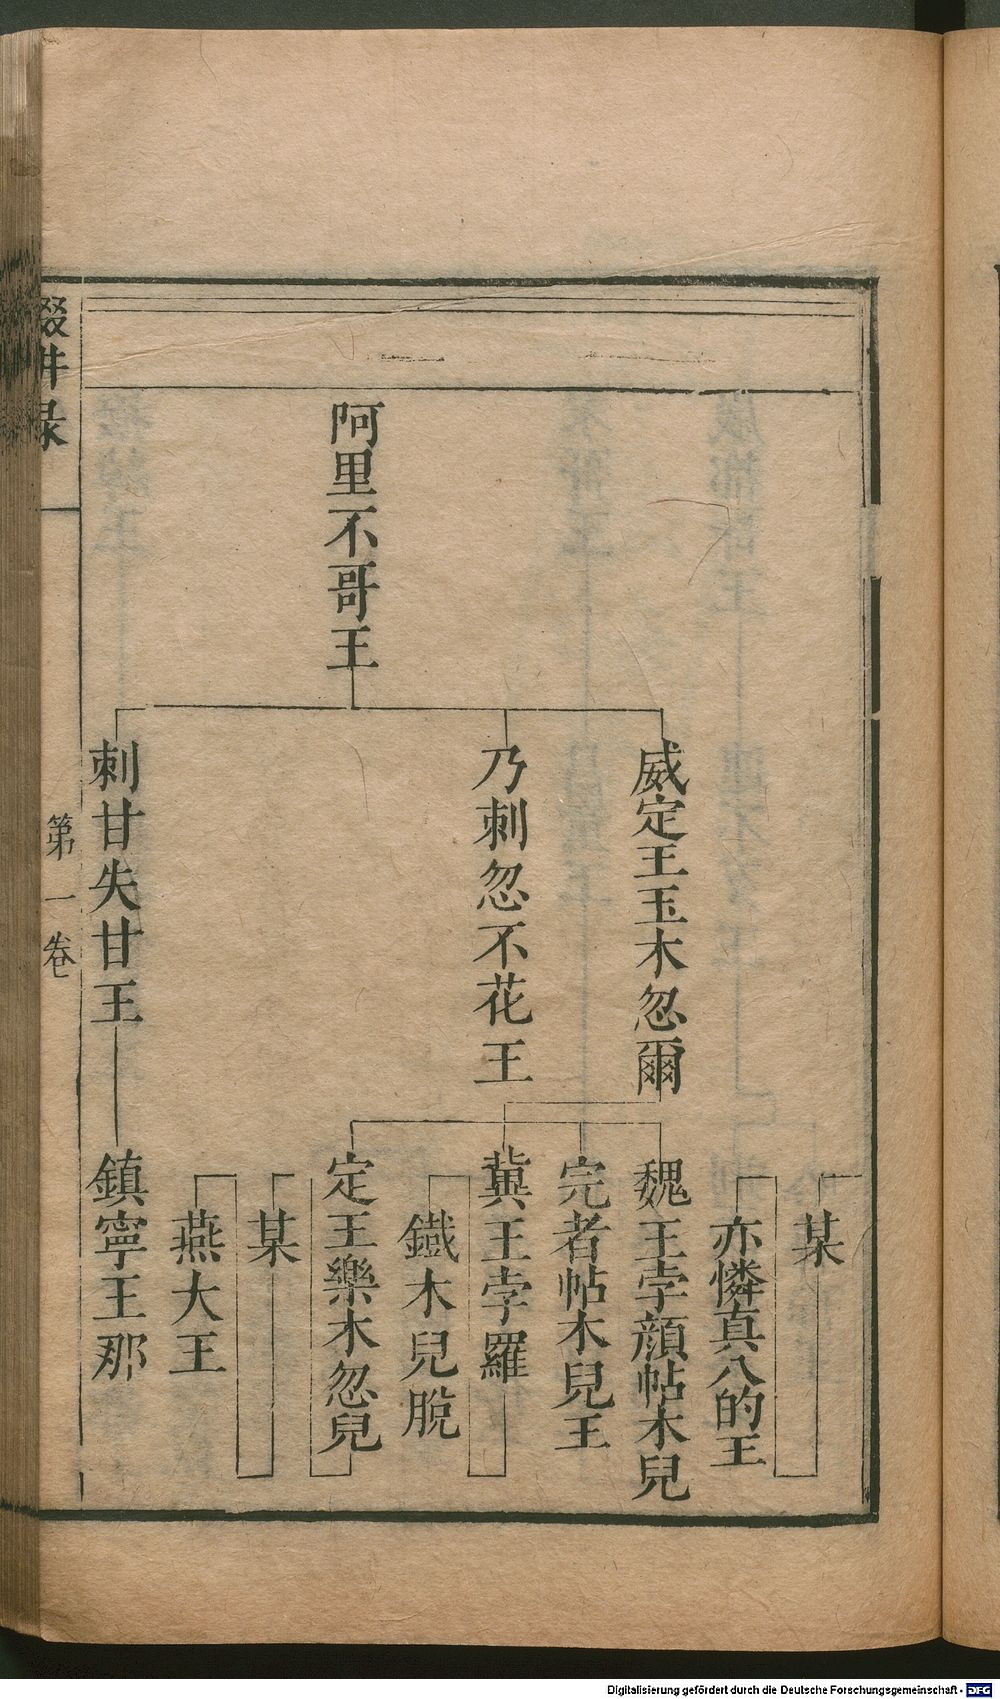 阿里不哥王
威定王玉木忽爾
乃刺忽不花王
刺甘失甘王
某
亦憐真八的王
魏王孛顔帖木兒
完者帖木兒王
冀王孛羅
鐵木兒脫
定王樂木忽兒
某
燕大王
鎮寧王那
輟畊录
第一卷
Digitalisierung gefördert durch die Deutsche Forschungsgemeinschaft - DFG